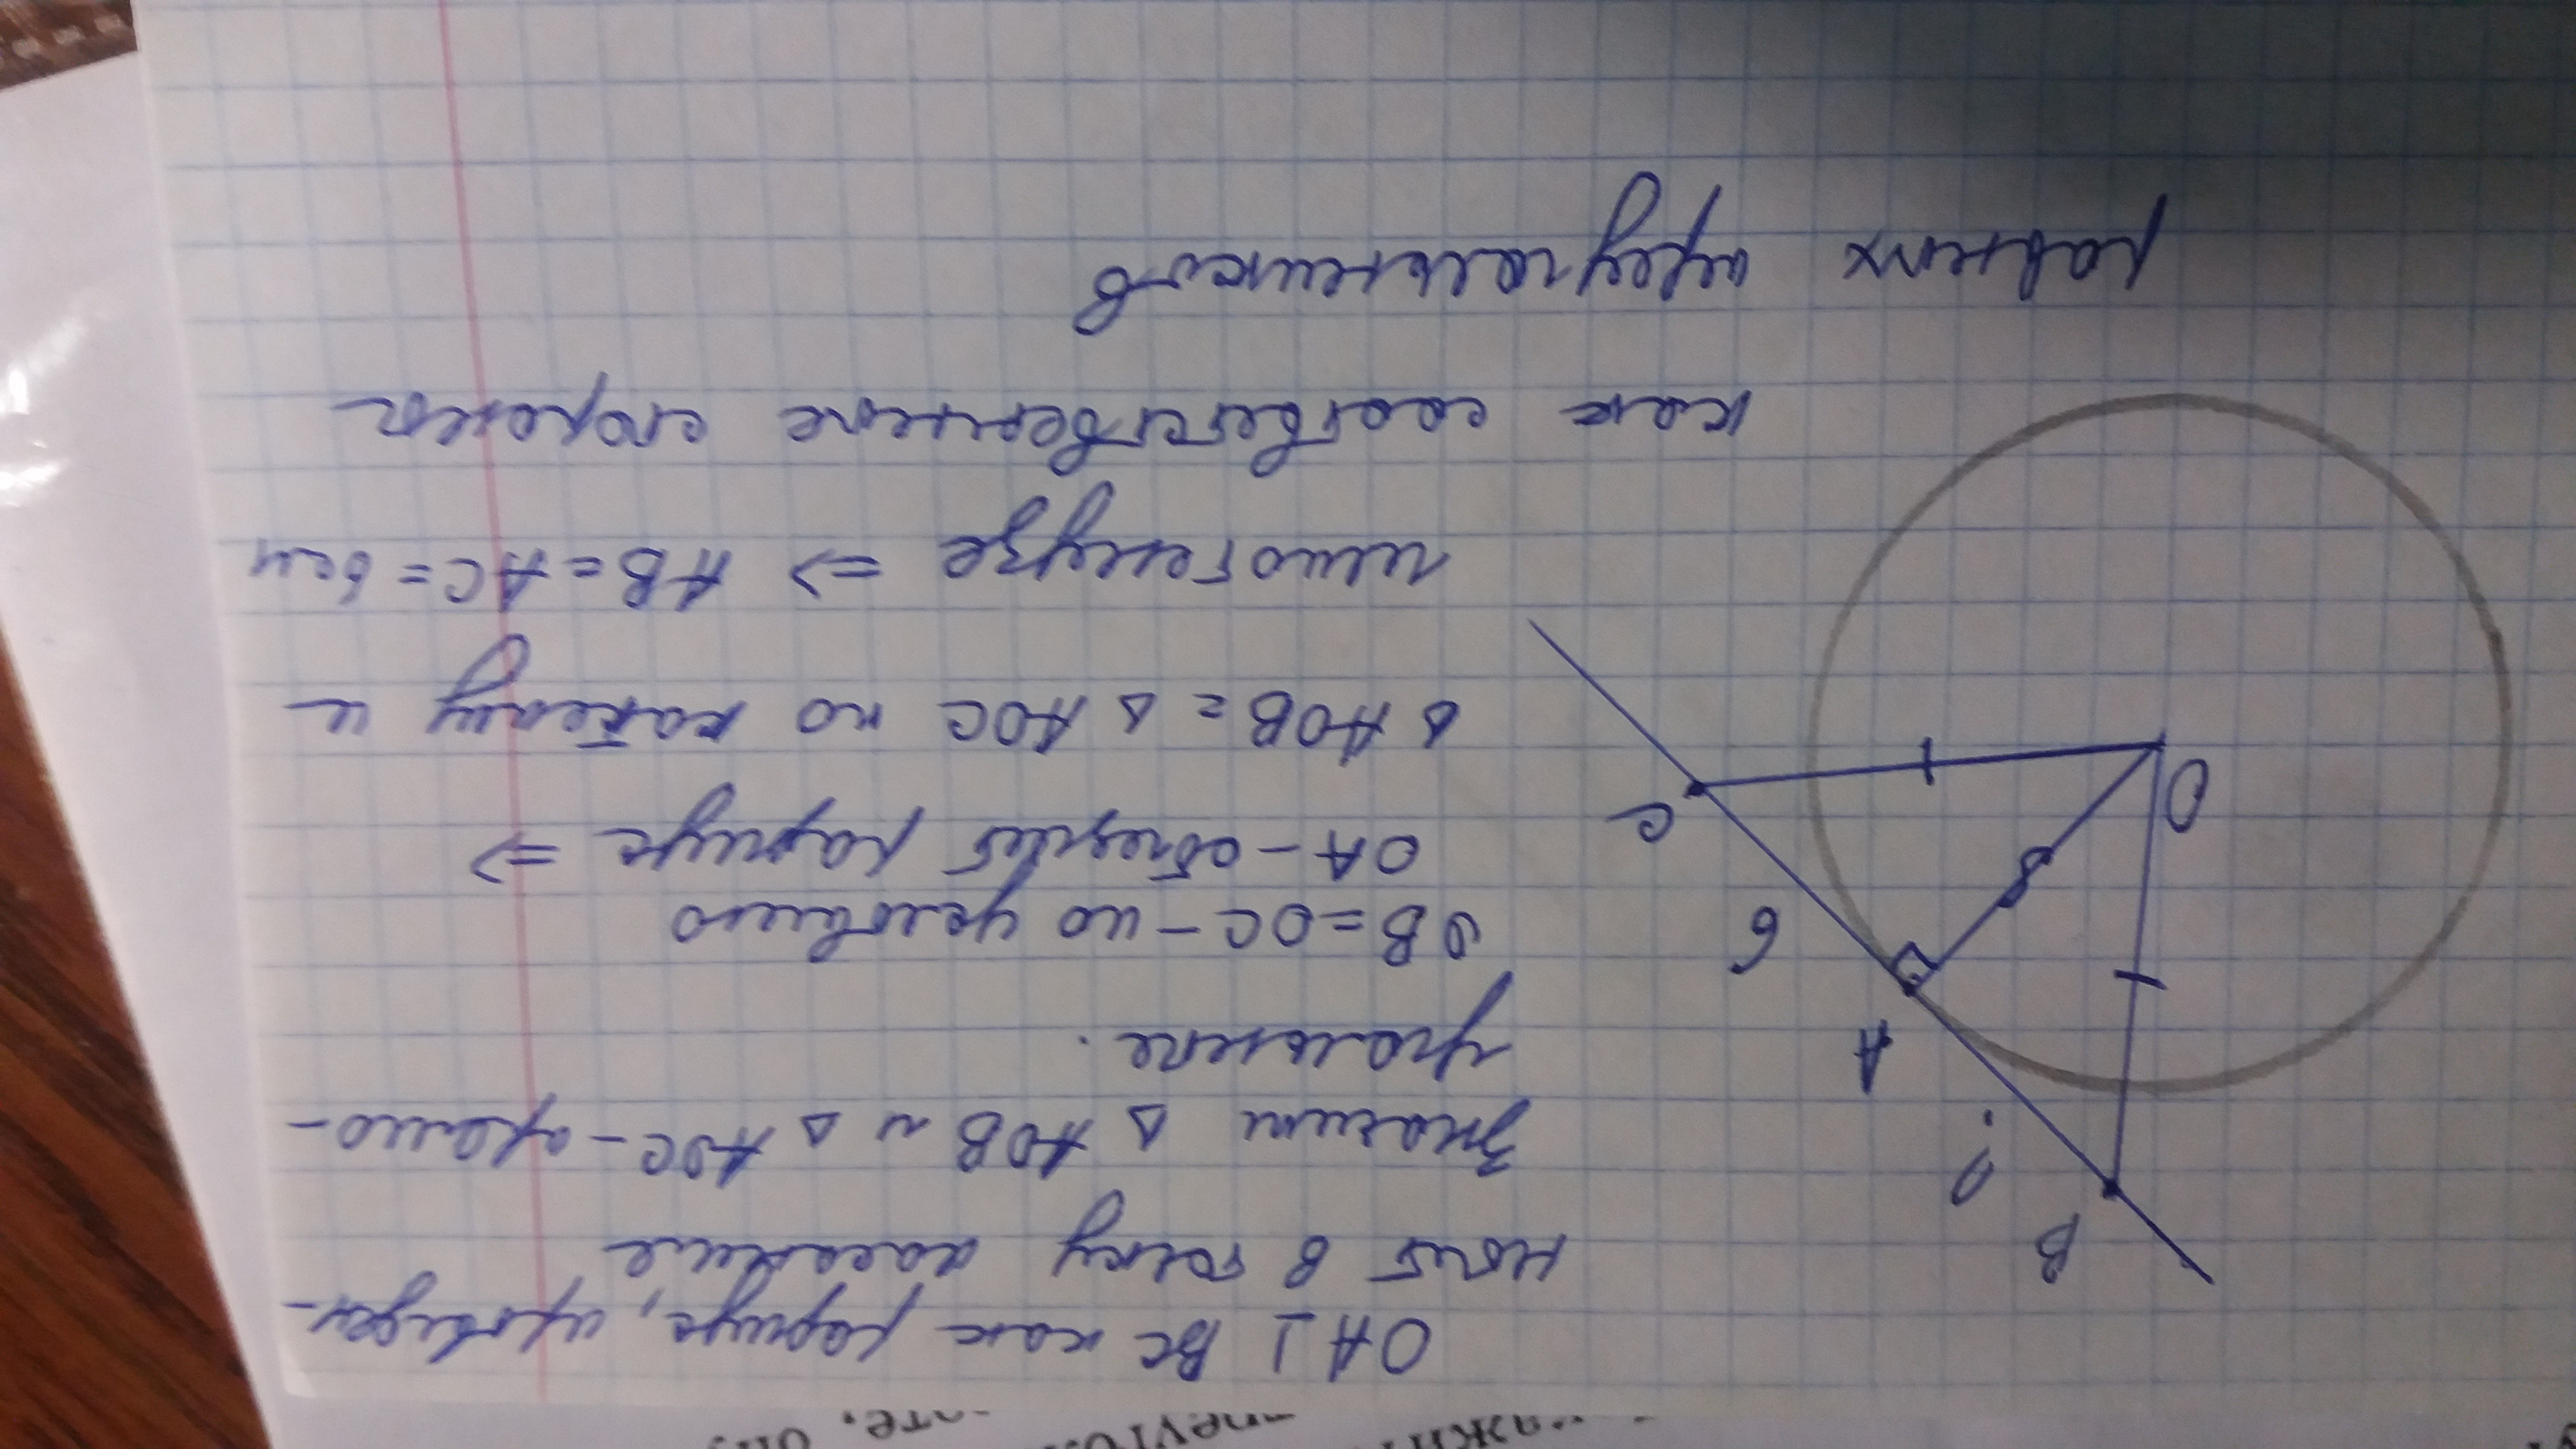 OA ⊥ BC как радиус, проведен-
ный в точку касания
Значит △ AOB и △ AOC - прямо-
угольные.
OB = OC - по условию
OA - общий радиус ⇒
△ AOB = △ AOC по катету и
гипотенузе ⇒ AB = AC = 6см
как соответственные стороны
равных треугольников
B
?
A
6
8
O
C